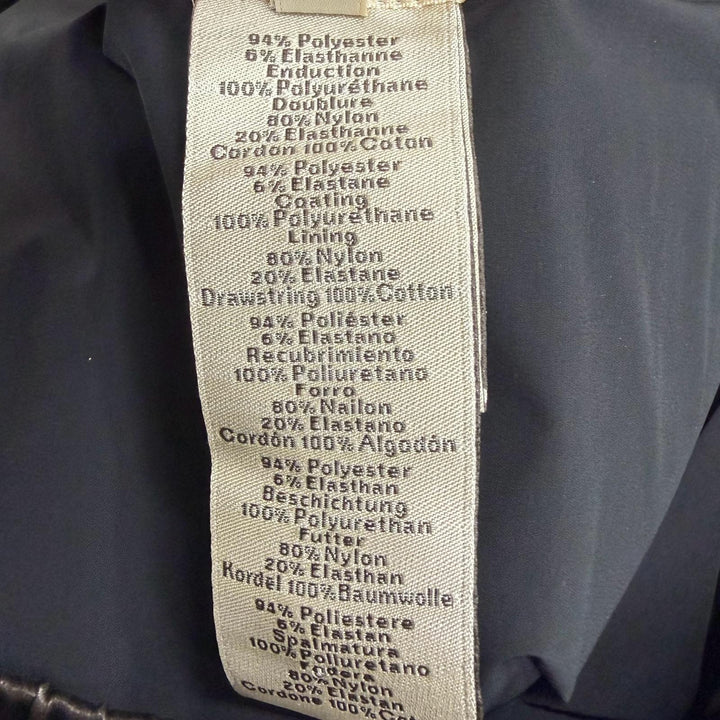 94% Polyester
6% Elasthanne
Enduction
100% Polyuréthane
Doublure
80% Nylon
20% Elasthanne
Cordon 100% Coton
94% Polyester
6% Elastane
Coating
100% Polyurethane
Lining
80% Nylon
20% Elastane
Drawstring 100% Cotton
94% Poliéster
6% Elastano
Recubrimiento
100% Poliuretano
Forro
80% Nailon
20% Elastano
Cordón 100% Algodón
94% Polyester
6% Elasthan
Beschichtung
100% Polyurethan
Futter
80% Nylon
20% Elasthan
Kordel 100% Baumwolle
94% Poliestere
6% Elastan
Spalmatura
100% Poliuretano
Fodera
80% Nylon
20% Elastan
Cordone 100% Cot